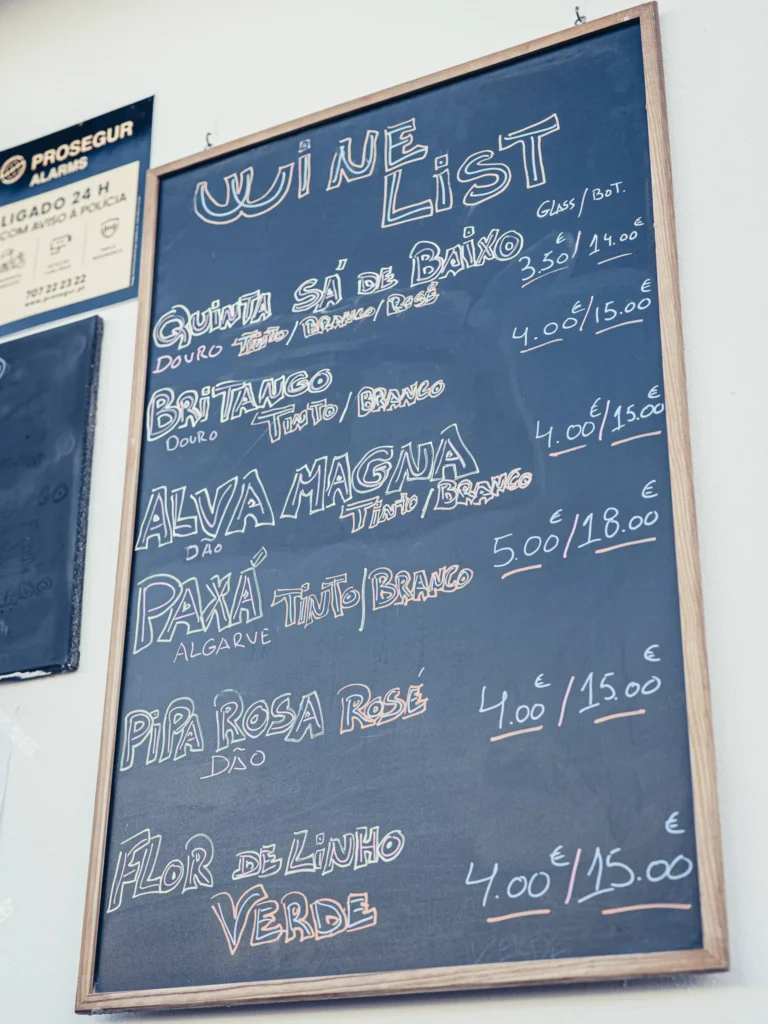 PROSEGUR
ALARMS
LIGADO 24 H
COM AVISO À POLÍCIA
707 22 23 22
www.prosegur.pt
WINE
LIST
GLASS/BOT.
QUINTA SÁ DE BAIXO 3.50€/14.00€
DOURO TINTO/BRANCO/ROSÉ
BRITANGO 4.00€/15.00€
DOURO TINTO/BRANCO
ALVA MAGNA 4.00€/15.00€
DÃO TINTO/BRANCO
PAXÁ TINTO/BRANCO 5.00€/18.00€
ALGARVE
PIPA ROSA ROSÉ 4.00€/15.00€
DÃO
FLOR DE LINHO 4.00€/15.00€
VERDE
VERDE